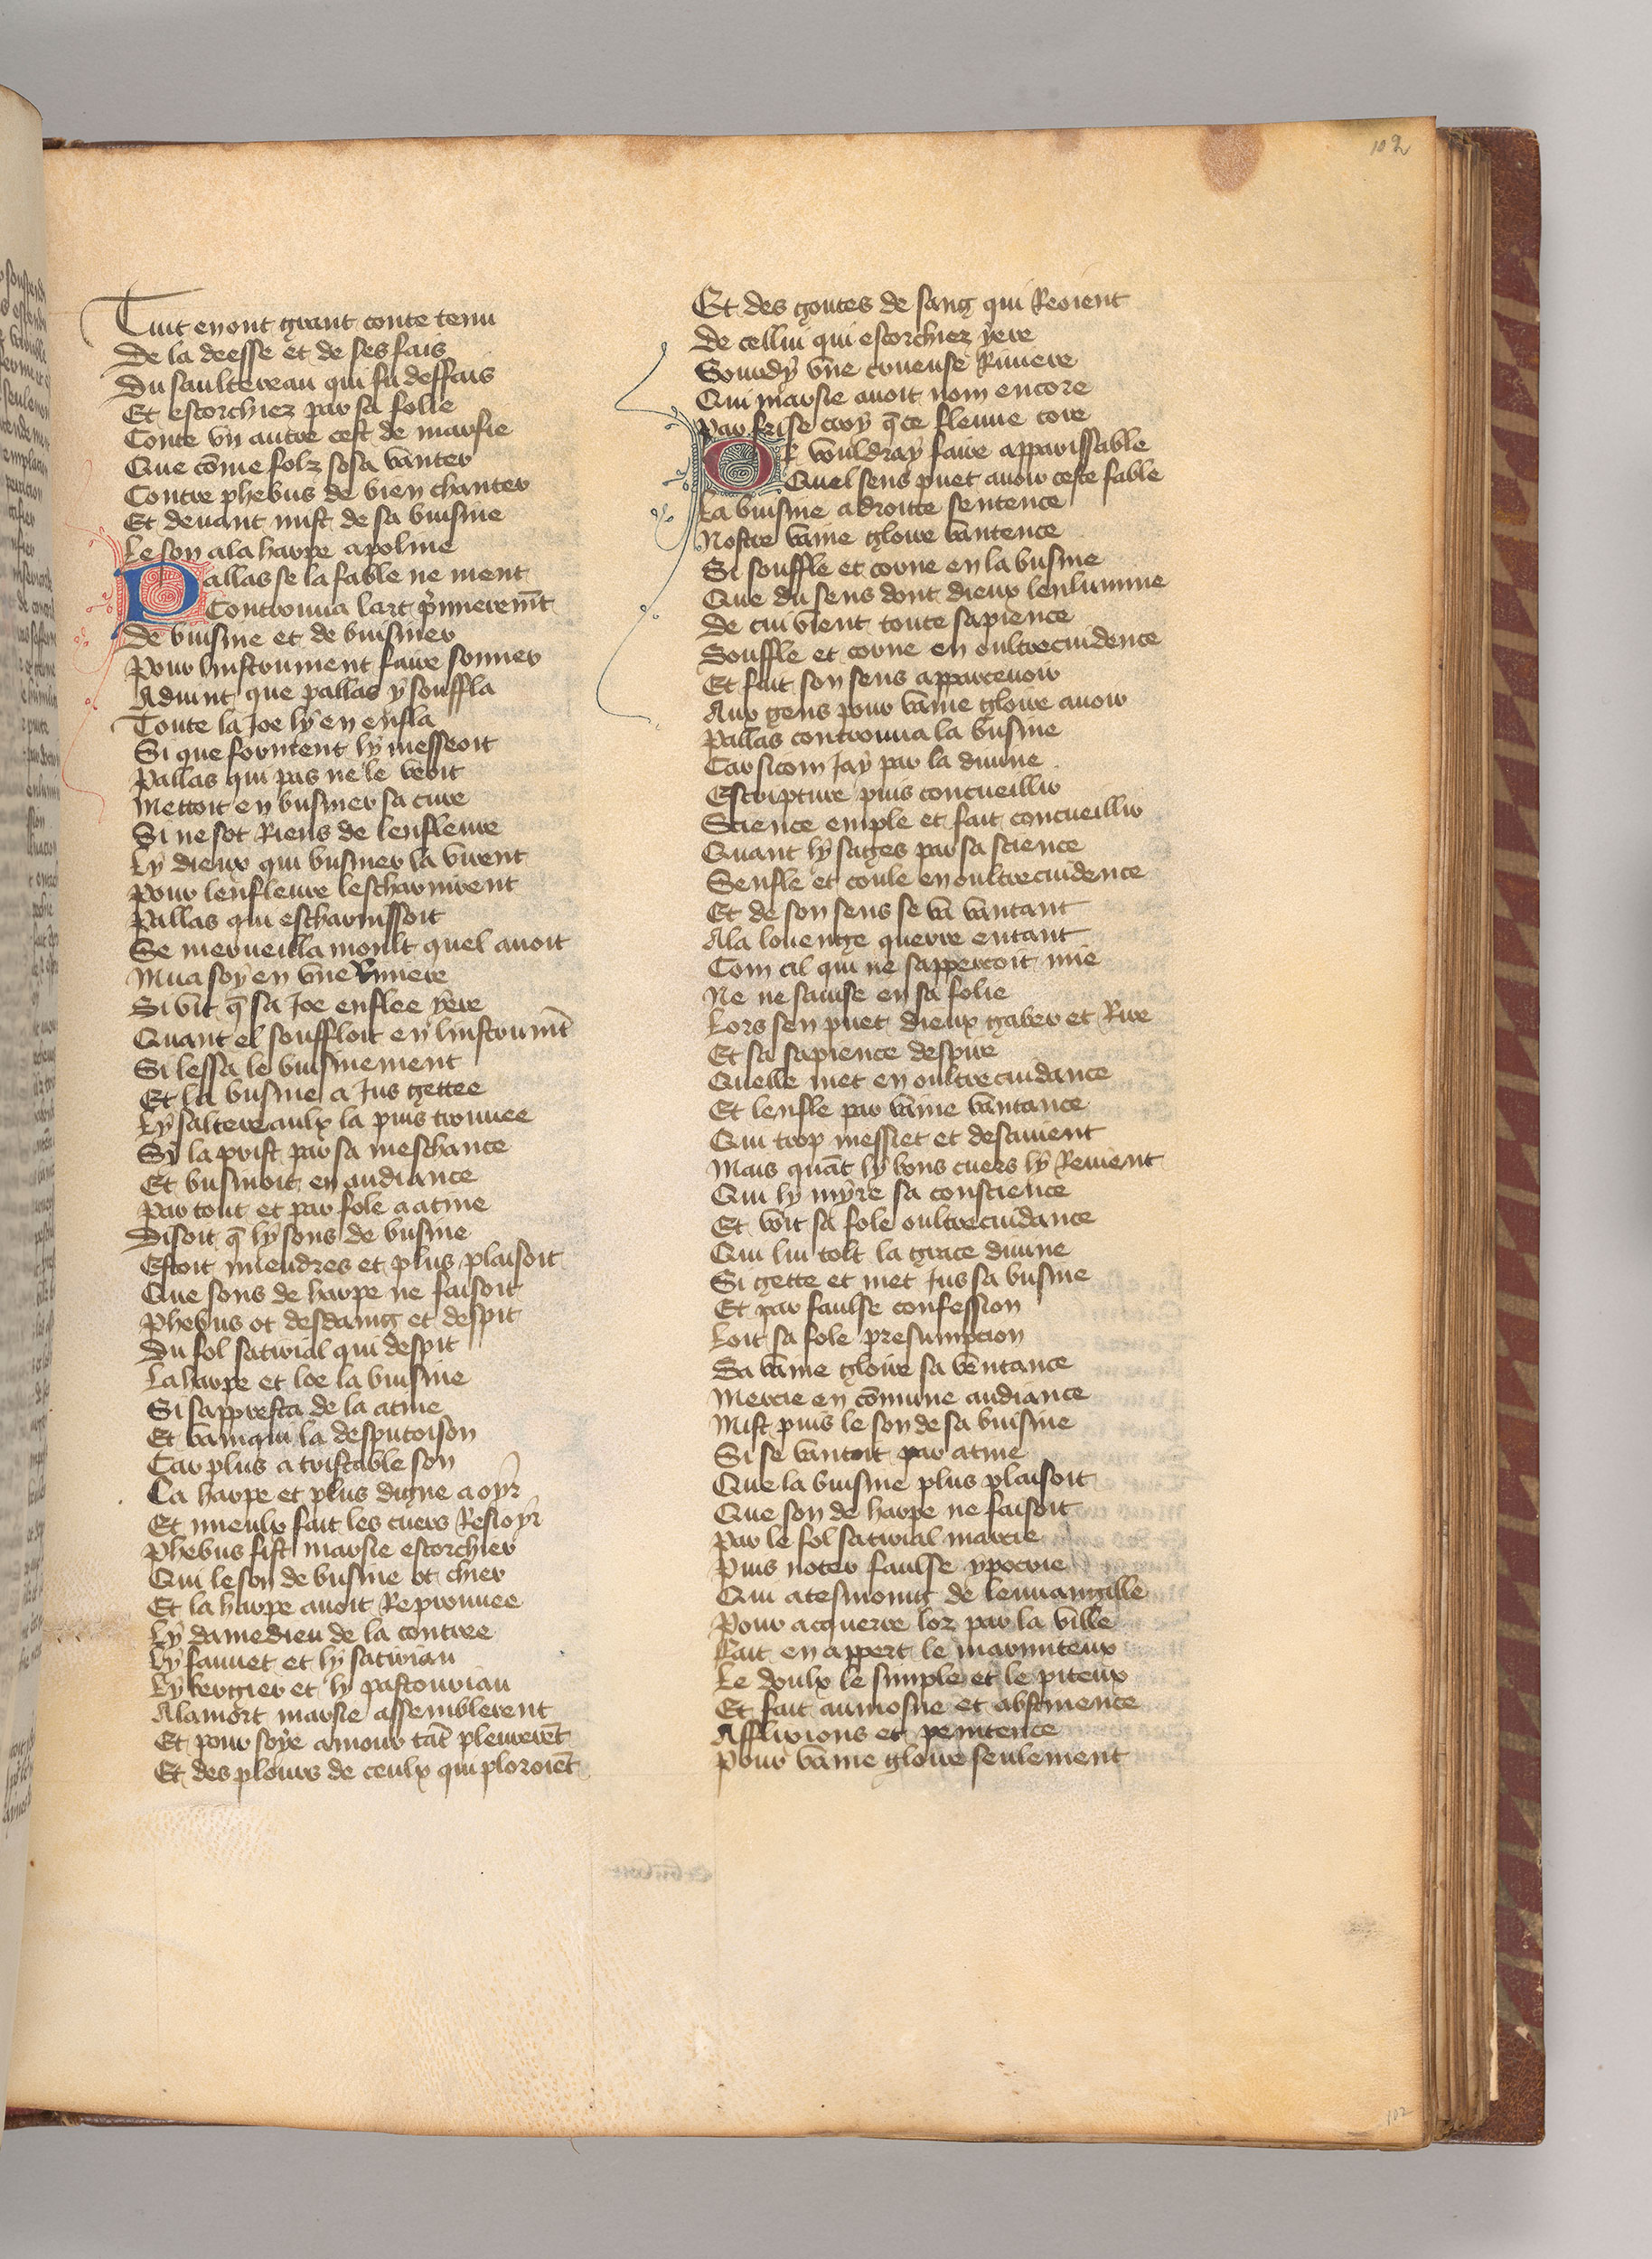 102
Tuit en ont grant conte tenu
De la deesse et de ses fais
Du saultereau qui fu deffais
Et escorchiez par sa folie
Conte vn autre cest de marsie
Que cōme folz sosa vanter
Contre phebus de bien chanter
Et deuant mist de sa buisine
Le son ala harpe apoline
Pallas se la fable ne ment
Controuua lart p̄mieremēt
De buisine et de buisiner
Pour linstrument faire sonner
Aduint que pallas y souffla
Toute la Joe ly en enfla
Si que forment ly messeoit
Pallas qui pas ne le veoit
Mettoit en businer sa cure
Si ne sot Riens de lenfleure
Ly dieux qui businer la virent
Pour lenfleure lescharnirent
Pallas qui escharnissoit
Se merueilla moult quel auoit
Mira soy en vne Riuiere
Si vit q̄ sa Joe enflee yere
Quant el souffloit en linstrumēt
Si lessa le buisinement
Et la busine a Jus gettee
Ly saltereaulx la puis trouuee
Si la prist par sa meschance
Et businoit en audiance
Par tout et par fole aatine
Disoit q̄ ly sons de busine
Estoit miendres et plus plaisoit
Que sons de harpe ne faisoit
Phebus ot desdaing et despit
Du fol satirial qui despit
La harpe et loe la buisine
Si sappresta de la atine
Et vainqui la desputoison
Car plus a tristable son
La harpe et plus digne a oyr
Et mieulx fait les cuers Resioyr
Phebus fist marsie escorchier
Qui le son de busine ot chier
Et la harpe auoit Reprouuee
Ly damedieu de la contree
Ly faunet et ly satirian
Ly bergier et ly pastourian
Ala mort marsie assemblerent
Et pour soye amour tāt pleurerēt
Et des plours de ceulx qui ploroiēt
Et des goutes de sang qui Reoient
De cellui qui escorchiez yere
Sourdy vne creuense Riuiere
Qui marsie auoit nom encore
Par frise croy q̄ ce fleuue core
Or vouldray faire apparissable
Quel sens puet auoir ceste fable
La buisine a droitte sentence
Nostre vaine gloire vantence
Si souffle et corne en la busine
Que du sens dont dieux lenlumine
De cui vient toute sapience
Souffle et corne en oultrecuidence
Et fait son sens apparceuoir
Aux gens pour vaine gloire auoir
Pallas controuua la busine
Car sicom Jay par la diuine
Escripture puis concueillir
Science emple et fait concueillir
Quant ly sages par sa science
Senfle et coule en oultrecuidence
Et de son sens se va vantant
Ala louenge querre entant
Com cil qui ne sappercoit mie
Ne ne sauise en sa folie
Lors sen puet dieux gaber et Rire
Et sa sapience despire
Quelle met en oultrecuidance
Et lenfle par vaine vantance
Qui trop messiet et desauient
Mais quāt ly bons cuers ly Reuient
Qui ly myre sa conscience
Et voit sa fole oultrecuidance
Qui lui tolt la grace diuine
Si gette et met Jus sa busine
Et par faulse confession
Loit sa fole presumpcion
Sa vaine gloire sa ventance
Mercie en cōmune audiance
Mist puis le son de sa buisine
Si se vantoit par atine
Que la buisine plus plaisoit
Que son de harpe ne faisoit
Par le fol satirial marcie
Puis noter faulse ypocrie
Qui a tesmoing de leuuangille
Pour acquerre loz par la ville
Fait en appert le marmiteux
Le doulx le simple et le piteux
Et fait aumosne et abstinence
Afflixions et penitence
Pour vaine gloire seulement
102